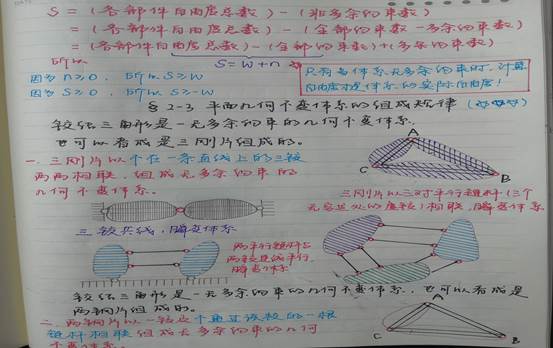 S = (各部件自由度总数) - (非多余约束数)
= (各部件自由度总数) - (全部约束数 - 多余约束数)
= (各部件自由度总数) - (全部约束数) + (多余约束数)
所以 S = W + n
只有当体系无多余约束时, 计算自由度才是体系的实际自由度!
因为 n≥0, 所以 S≥W
因为 S≥0, 所以 S≥-W
§2-3 平面几何不变体系的组成规律
铰结三角形是一无多余约束的几何不变体系,
也可以看成是三刚片组成的。
一. 三刚片以不在一条直线上的三铰
两两相联, 组成无多余约束的
几何不变体系。
A
C
B
三刚片以三对平行链杆(三个
无穷远处的虚铰)相联, 瞬变体系
三铰共线, 瞬变体系
两平行链杆与
两铰连线平行,
瞬变体系
铰结三角形是一无多余约束的几何不变体系, 也可以看成是
两钢片组成的。
二. 两钢片以一铰及不通过该铰的一根
链杆相联组成无多余约束的几何
不变体系。
A
C
B